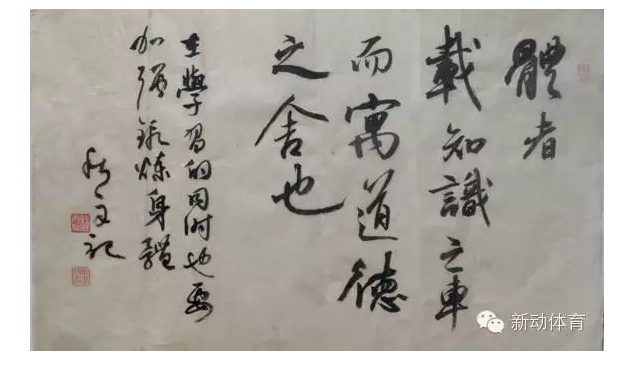 體者
載知識之車
而寓道德
之舍也
在學習的同时也要
加强锻炼身體
文記
新动体育